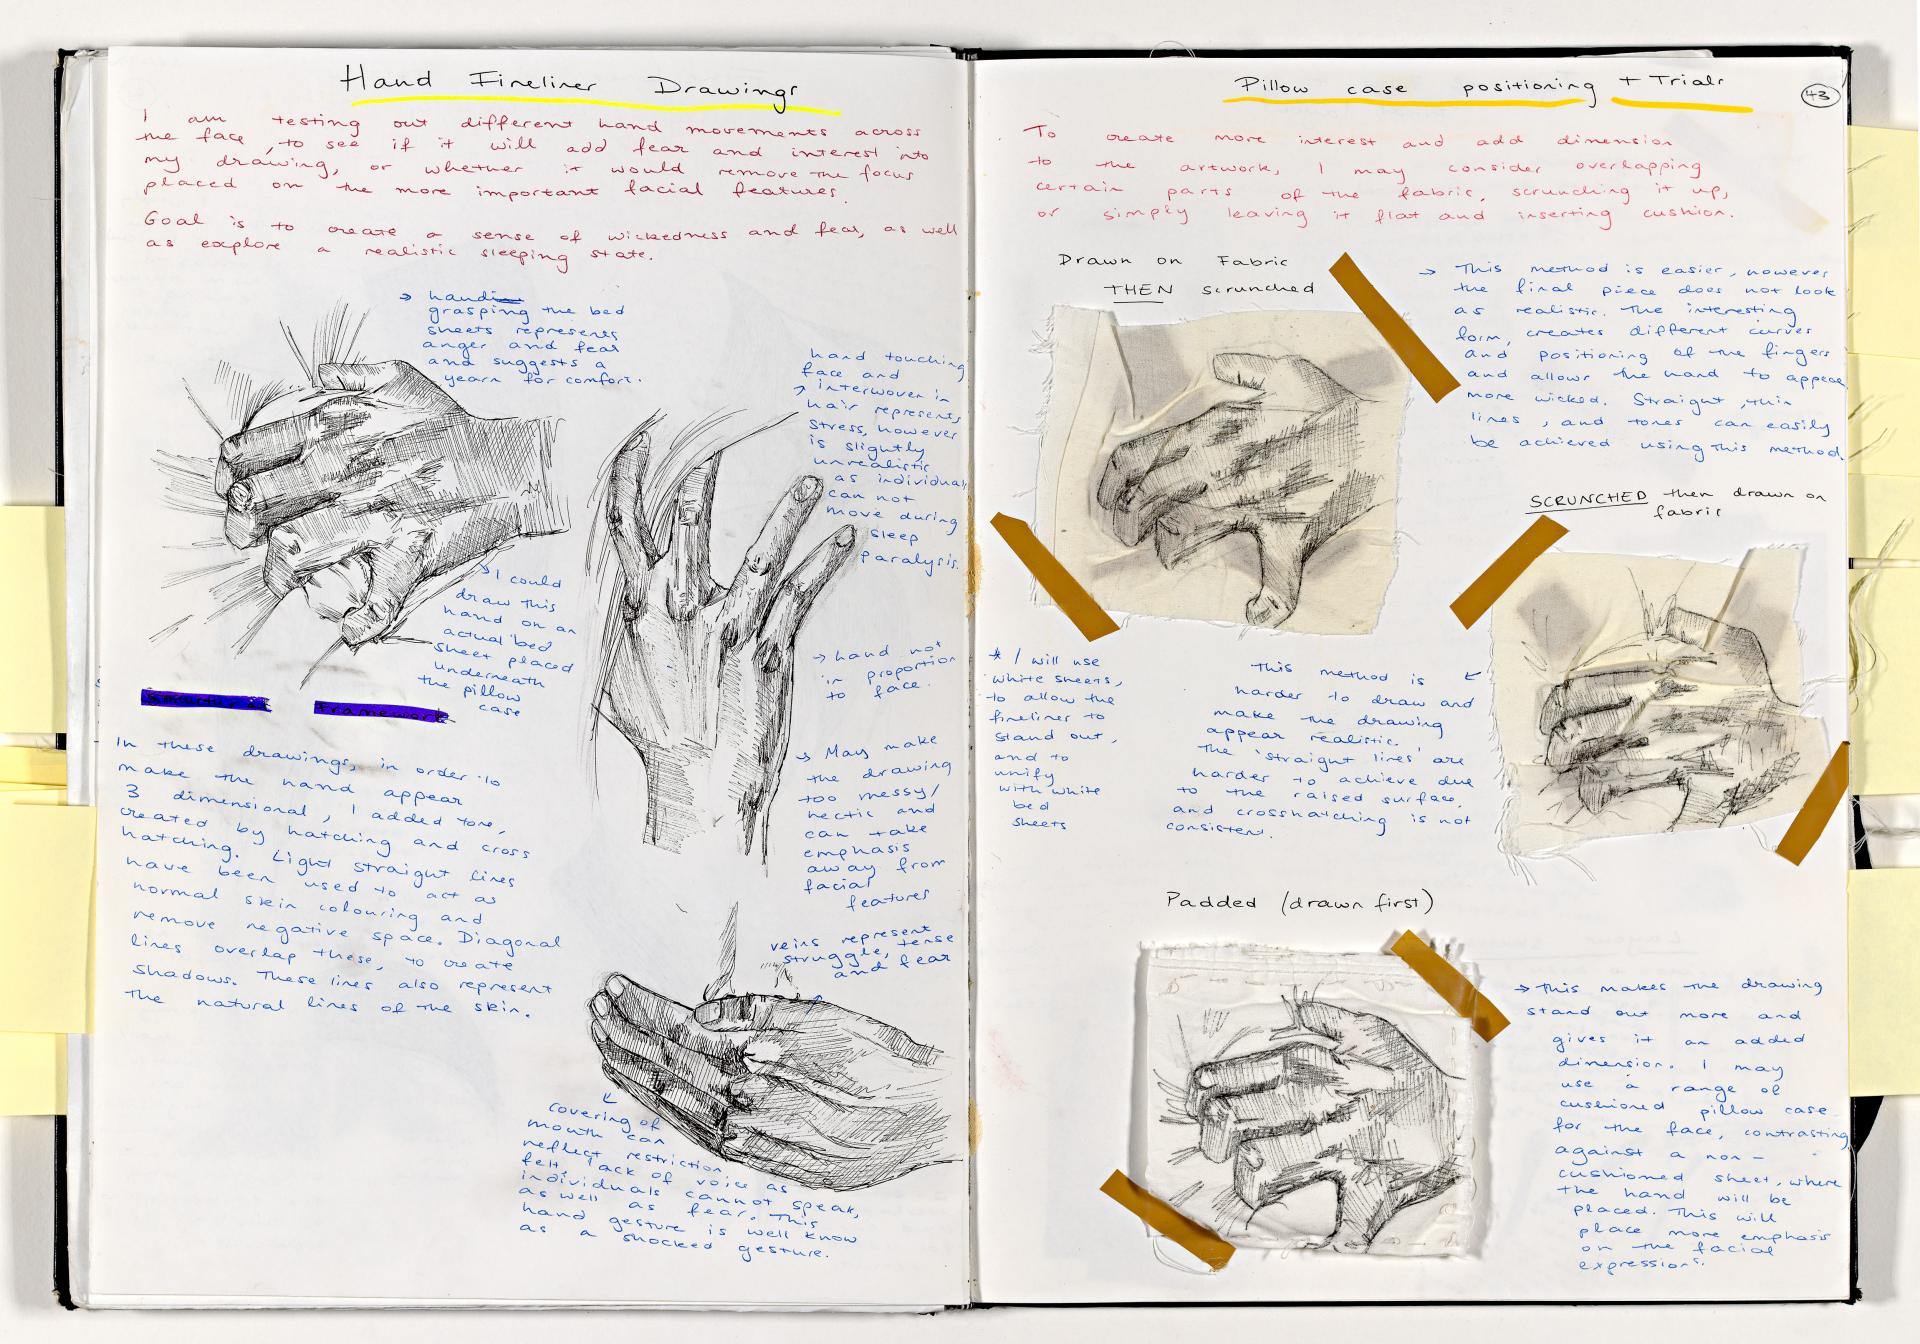 Hand Fineliner Drawings
I am testing out different hand movements across
the face, to see if it will add fear and interest into
my drawing, or whether it would remove the focus
placed on the more important facial features.
Goal is to create a sense of wickedness and fear, as well
as explore a realistic sleeping state.
→ hand
grasping the bed
sheets represents
anger and fear
and suggests a
yearn for comfort.
hand touching
face and
→ interwoven in
hair represents
stress, however
is slightly
unrealistic
as individuals
can not
move during
sleep
paralysis.
→ I could
draw this
hand on an
actual bed
sheet placed
underneath
the pillow
case
→ hand not
in proportion
to face.
Framework
In these drawings, in order to
make the hand appear
3 dimensional, I added tone,
created by hatching and cross
hatching. Light straight lines
have been used to act as
normal skin colouring and
remove negative space. Diagonal
lines overlap these, to create
shadows. These lines also represent
the natural lines of the skin.
→ May make
the drawing
too messy/
hectic and
can take
emphasis
away from
facial
features
veins represent
struggle, tense
and fear
covering of
mouth can
reflect restriction
felt, lack of voice as
individuals cannot speak,
as well as fear. This
hand gesture is well know
as a shocked gesture.
Pillow case positioning + Trials
43
To create more interest and add dimension
to the artwork, I may consider overlapping
certain parts of the fabric, scrunching it up,
or simply leaving it flat and inserting cushion.
Drawn on Fabric
THEN scrunched
→ This method is easier, however
the final piece does not look
as realistic. The interesting
form, creates different curves
and positioning of the fingers
and allows the hand to appear
more wicked. Straight, thin
lines, and tones can easily
be achieved using this method.
SCRUNCHED then drawn on
fabric
* I will use
white sheets,
to allow the
fineliner to
stand out,
and to
unify
with white
bed
sheets
This method is
harder to draw and
make the drawing
appear realistic.
The straight lines are
harder to achieve due
to the raised surface,
and crosshatching is not
consistent.
Padded (drawn first)
→ This makes the drawing
stand out more and
gives it an added
dimension. I may
use a range of
cushioned pillow case
for the face, contrasting
against a non-
cushioned sheet, where
the hand will be
placed. This will
place more emphasis
on the facial
expressions.